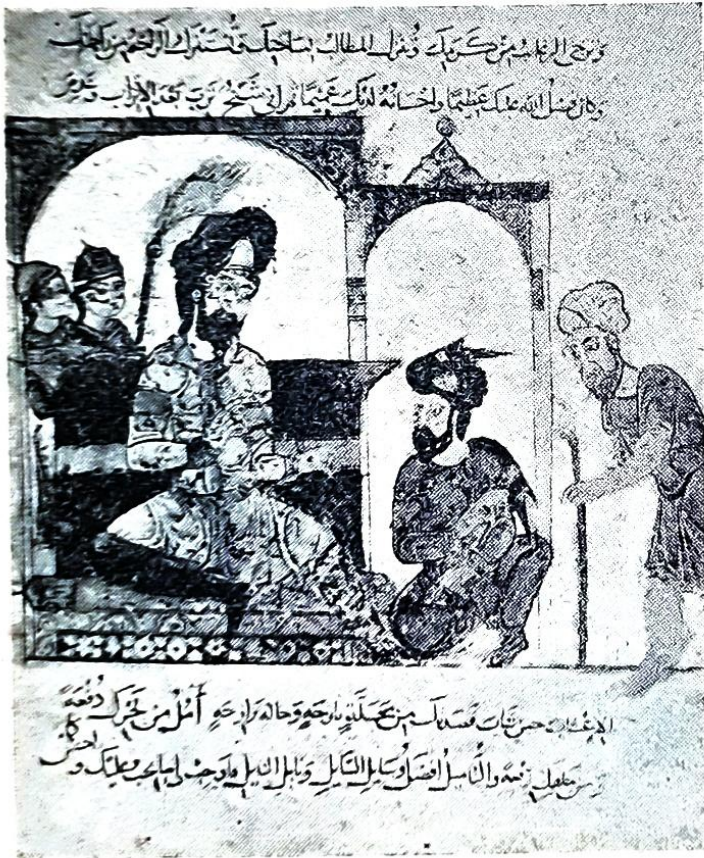 وترجى الرغايب من كرمك وتنزل المطالب بساحتك وتستنزل الراحة من راحتك
وكان فضل الله عليك عظيما واحسانه لديك عميما ثم اني شيخ ترب بعد الاتراب وعدم
الاعشاب حين شاب قصدتك من محلة نازحة وحالة رازحة آمل من بحرك دفعة
ومن جاهك رفعة والتاميل افضل وسايل السايل ونايل النايل فاوجب لي ما يجب عليك واحسن كما